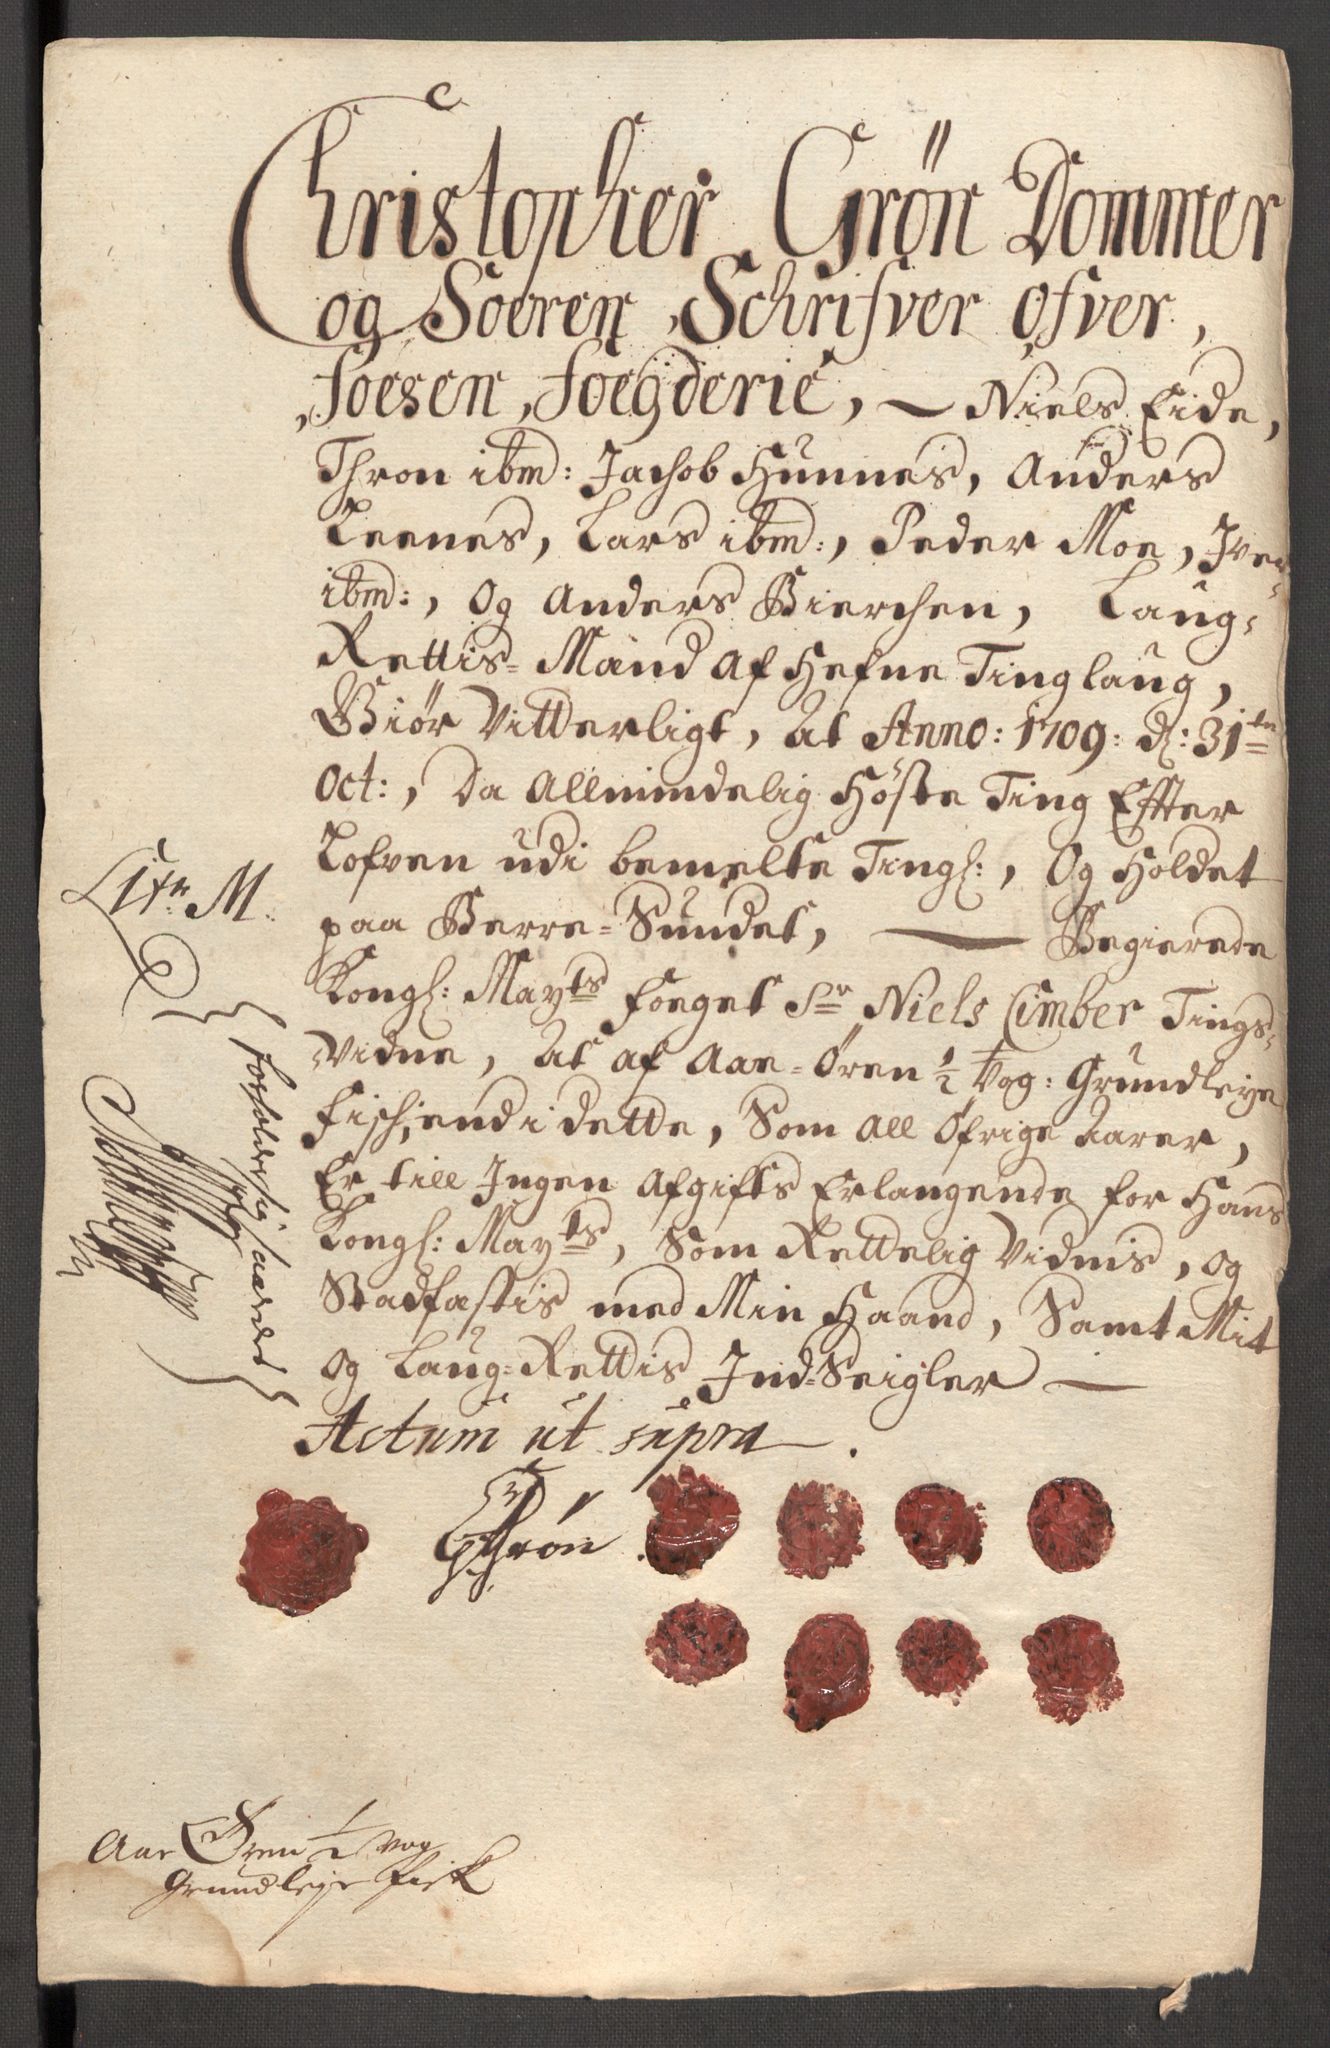 Christopher Grøn Dommer
og Soeren Schrifver ofver,
Foesen Foegderie, — Niels Eide,
Thron ibm: Jachob Hunnes, Anders
Leenes, Lars ibm:, Peder Moe, Iver
ibm:, og Anders Bierchen, Laug-
Rettis-Mænd af Hefne Tinglaug,
Giør Vitterligt, at Anno: 1709: d: 31te
Oct:, Da Allmindelig Høste Ting Effter
Lofven udi bemelte Tingl:, Og Holdet
paa Berre-Sundet, — Begierede
Kongl: Mayts Foeget Sr Niels Cimber Tings-
Vidne, at af Aae-Øren 1/2 Vog: Grundleye
Fisch, end i dette, Som all Øfrige Aarer,
Er till Ingen Afgifts Erlangende for Hans
Kongl: Mayts, Som Rettelig Vidnis, og
Stadfæstis med Min Haand, Samt Mit
og Laug-Rettis Ind-Seigler —
Actum ut supra.
Grøn
Litr: M:
forholder sig saaledes
Aae Øren 1/2 vog
Grundleye Fisk